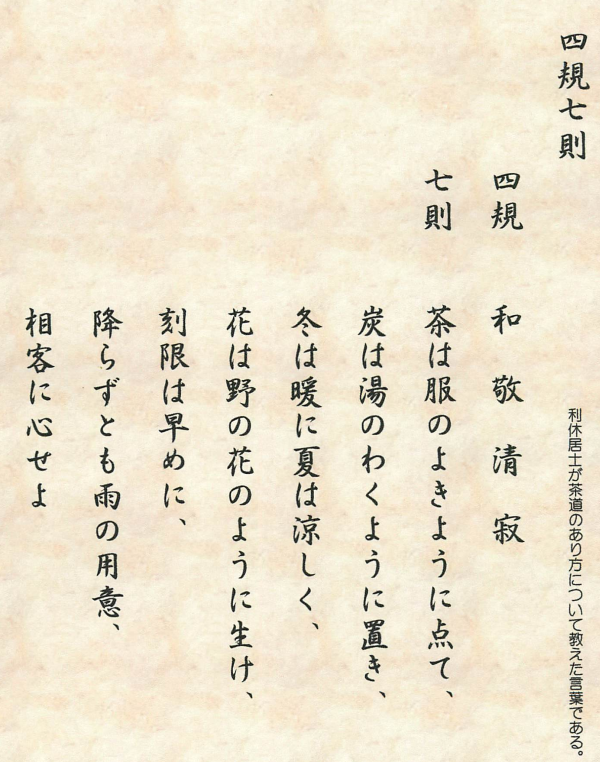 四規七則
利休居士が茶道のあり方について教えた言葉である。
四規 和敬清寂
七則 茶は服のよきように点て、
炭は湯のわくように置き、
冬は暖に夏は涼しく、
花は野の花のように生け、
刻限は早めに、
降らずとも雨の用意、
相客に心せよ